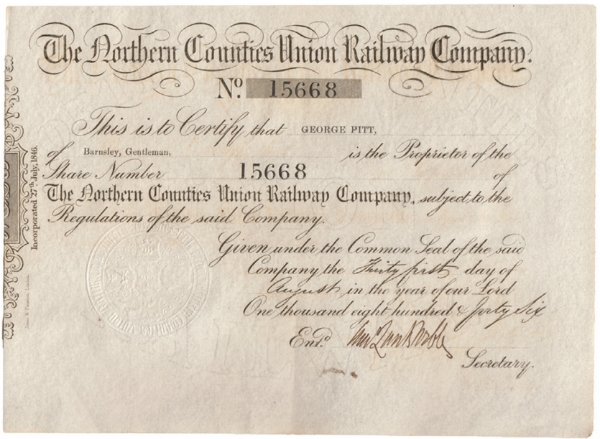 The Northern Counties Union Railway Company.
No. 15668
This is to Certify that GEORGE PITT,
of Barnsley, Gentleman, is the Proprietor of the
Share Number 15668 of
The Northern Counties Union Railway Company, subject to the
Regulations of the said Company.
Given under the Common Seal of the said
Company the Thirty first day of
August in the year of our Lord
One thousand eight hundred & forty six
Entd.
Secretary.
Incorporated 27th July, 1846.